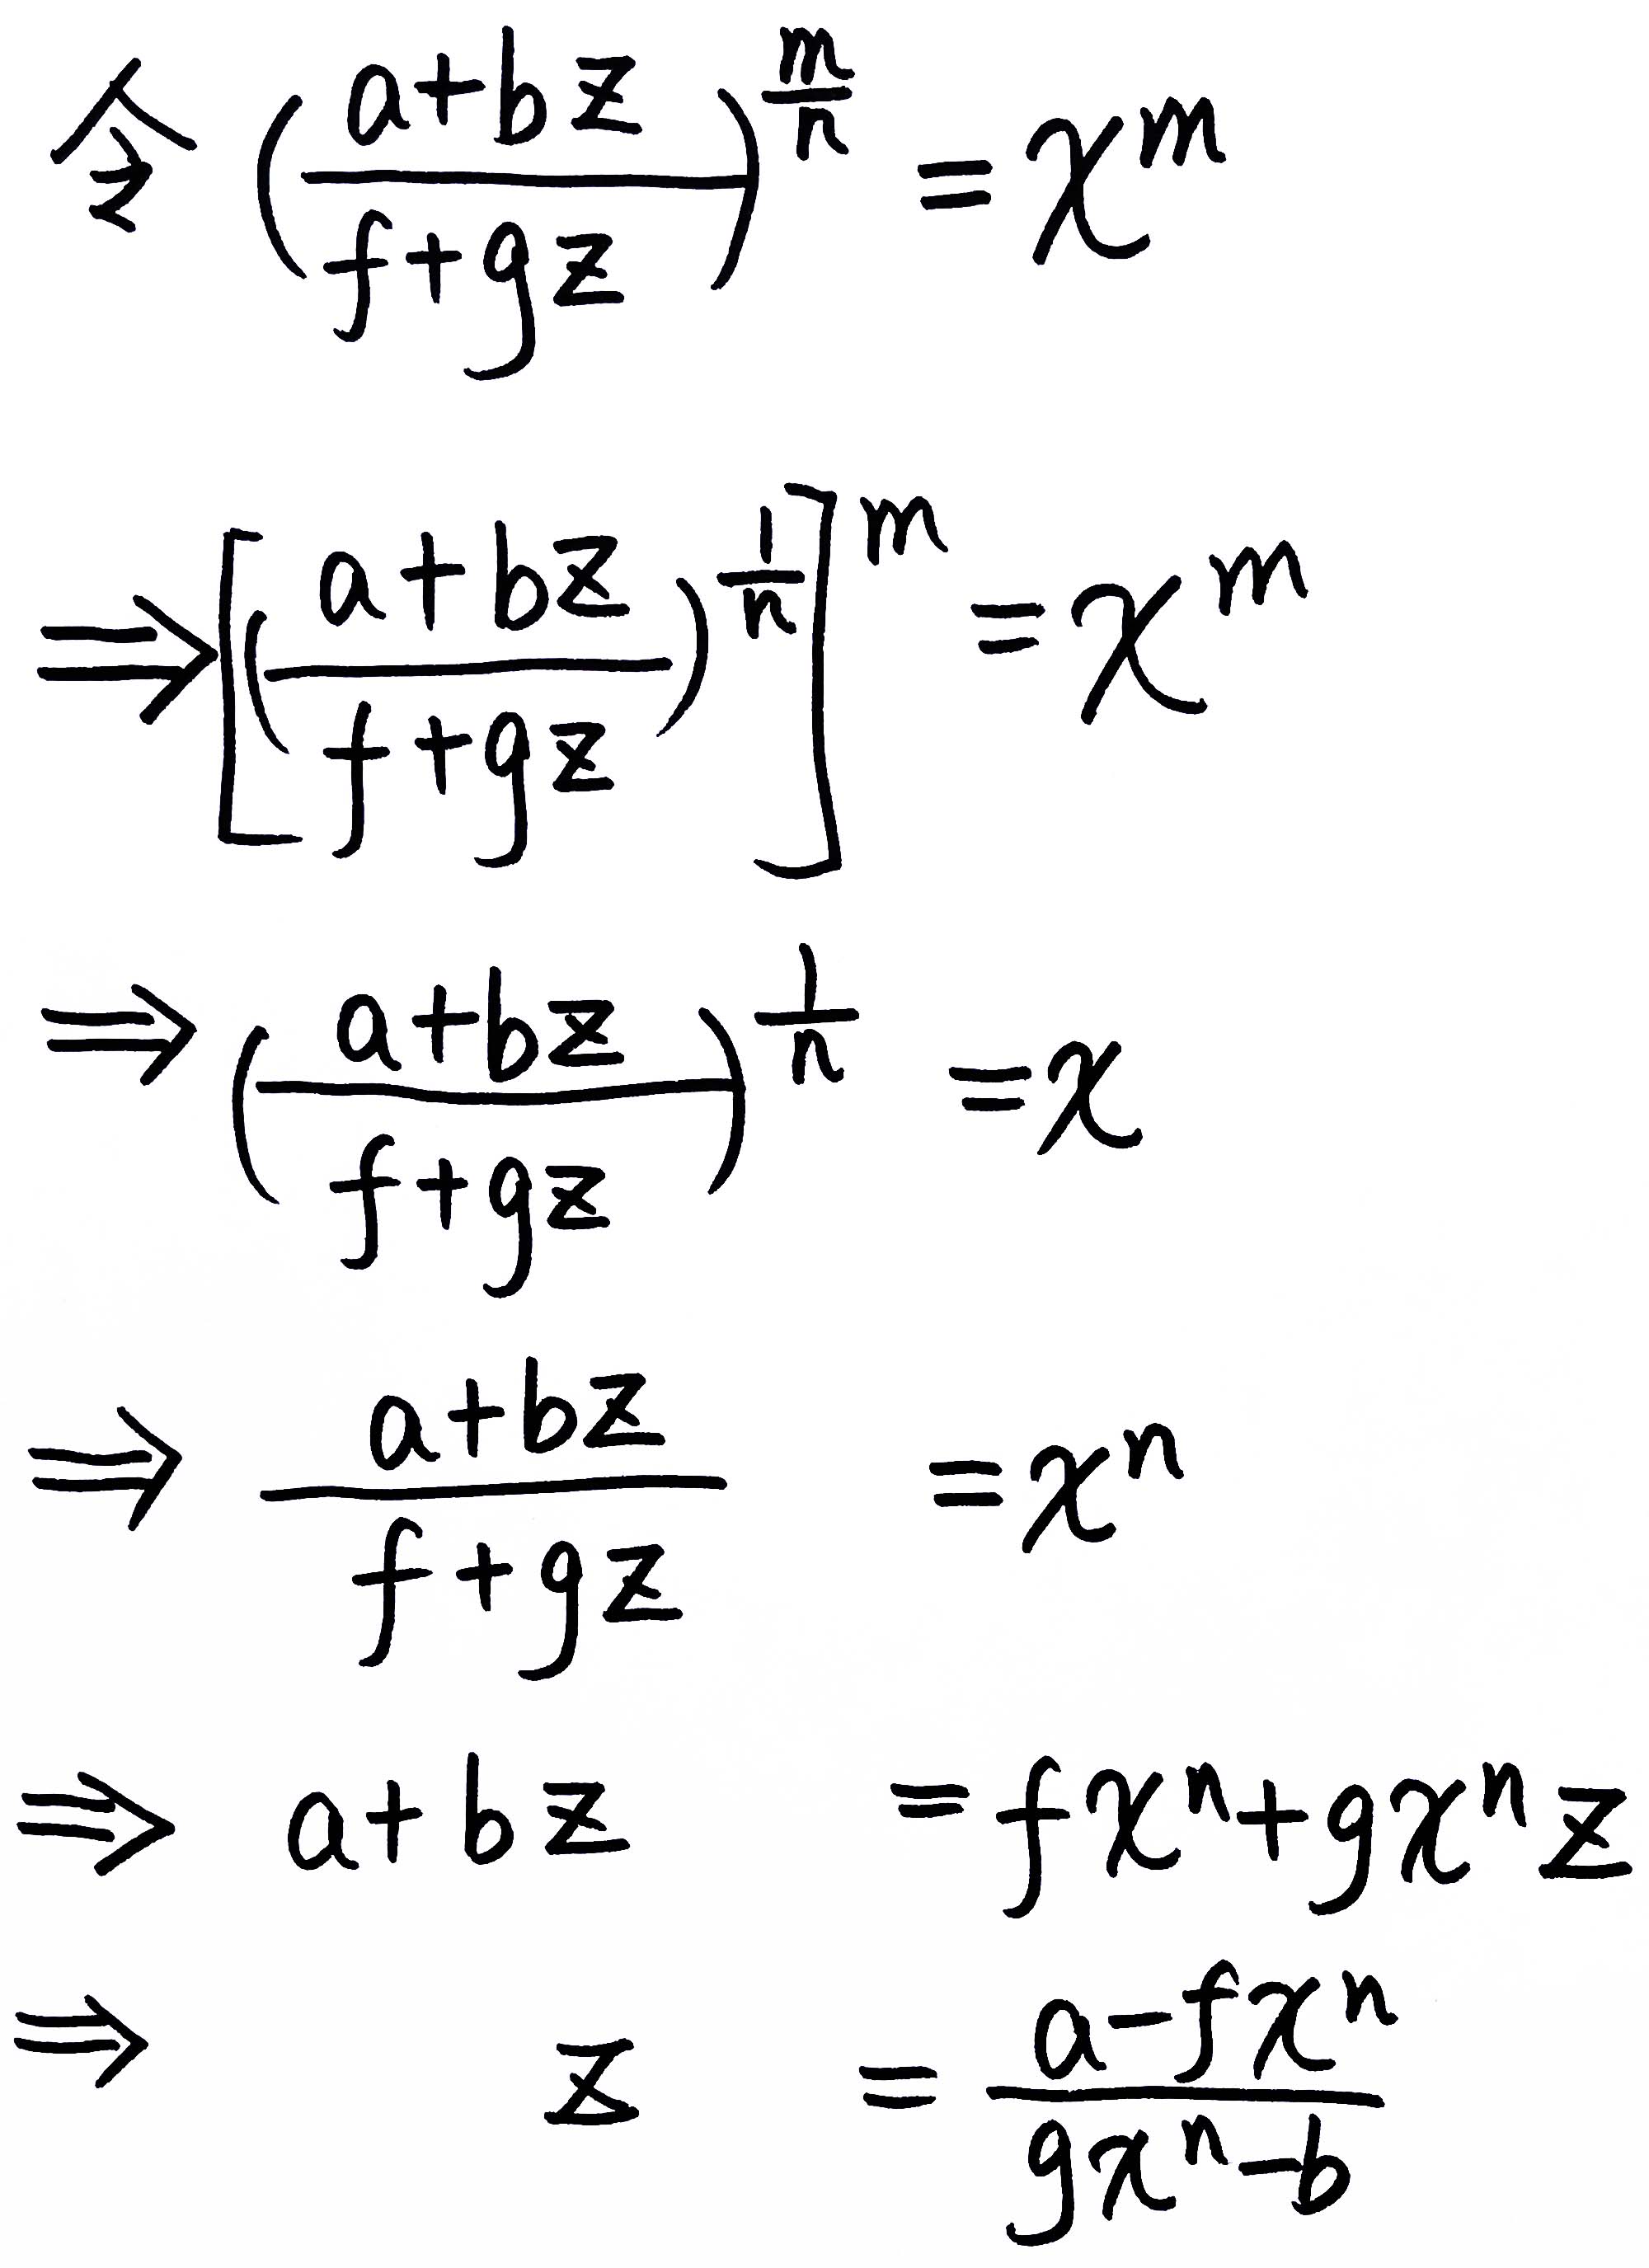 令 $\left(\frac{a+bz}{f+gz}\right)^{\frac{m}{n}} = x^m$
$\Rightarrow \left[\left(\frac{a+bz}{f+gz}\right)^{\frac{1}{n}}\right]^m = x^m$
$\Rightarrow \left(\frac{a+bz}{f+gz}\right)^{\frac{1}{n}} = x$
$\Rightarrow \frac{a+bz}{f+gz} = x^n$
$\Rightarrow a+bz = fx^n+gx^nz$
$\Rightarrow z = \frac{a-fx^n}{gx^n-b}$